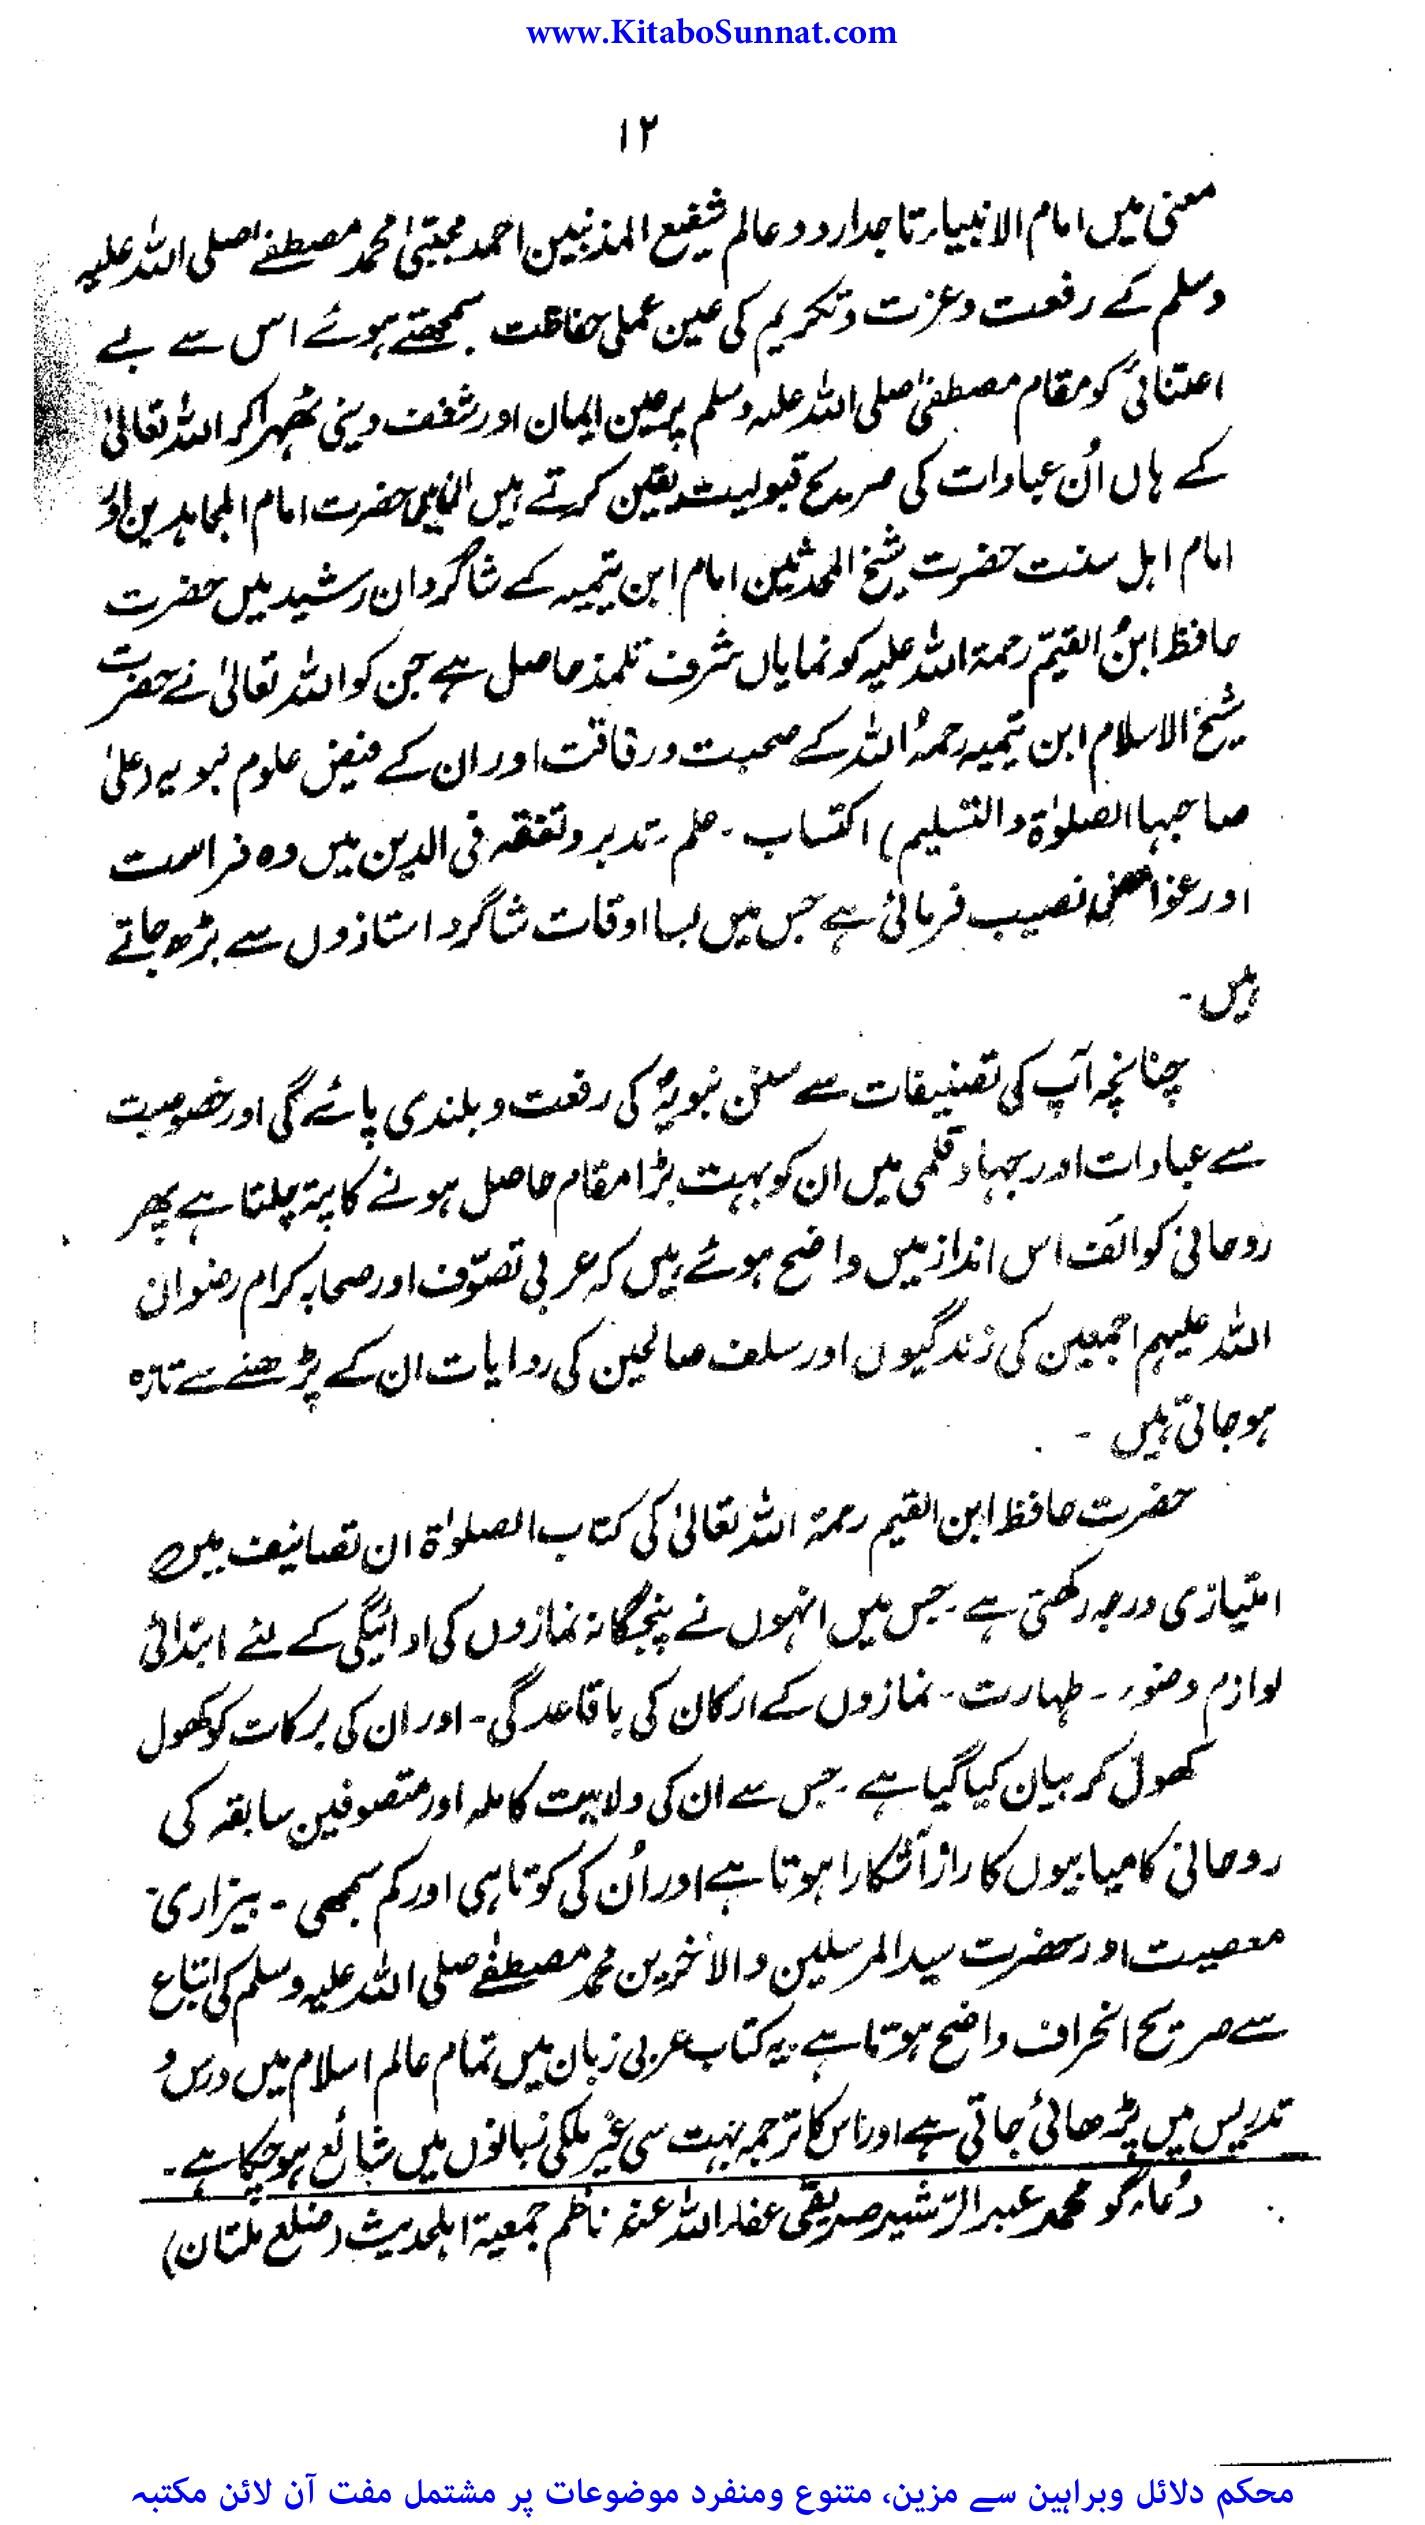 www.KitaboSunnat.com
۱۲
معنی میں امام الانبیاء تاجدار دو عالم شفیع المذنبین احمد مجتبیٰ محمد مصطفےٰ صلی اللہ علیہ
وسلم کے رفعت وعزت وتکریم کی عین عملی حفاظت سمجھتے ہوئے اس سے بے
اعتنائی کو مقام مصطفیٰ صلی اللہ علیہ وسلم پر عین ایمان اور شغف دینی ٹھہرا کر اللہ تعالیٰ
کے ہاں اُن عبادات کی صریح قبولیت یقین کرتے ہیں حضرت امام المجاہدین اور
امام اہل سنت حضرت شیخ المحدثین امام ابن تیمیہ کے شاگردان رشید میں حضرت
حافظ ابنُ القیمّ رحمۃ اللہ علیہ کو نمایاں شرف تلمذ حاصل ہے جن کو اللہ تعالیٰ نے حضرت
شیخ الاسلام ابن تیمیہ رحمہُ اللہ کے صحبت ورفاقت اور ان کے فیض علوم نبویہ (علیٰ
صاحبہا الصلوٰۃ والتسلیم) اکتساب ۔ علم ۔ تدبر وتفقہ فی الدین میں وہ فراست
اور نصیب فرمائی ہے جس میں بسا اوقات شاگرد استاذوں سے بڑھ جاتے
ہیں ۔
چنانچہ آپ کی تصنیفات سے سنن نبویہؐ کی رفعت و بلندی پائے گی اور خصوصیت
سے عبادات اور جہاد قلمی میں ان کو بہت بڑا مقام حاصل ہونے کا پتہ چلتا ہے پھر
روحانی کوائف اس انداز میں واضح ہوئے ہیں کہ عربی تصوّف اور صحابہ کرام رضوان
اللہ علیہم اجمعین کی زندگیوں اور سلف صالحین کی روایات ان کے پڑھنے سے تازہ
ہو جاتی ہیں ۔
حضرت حافظ ابن القیم رحمۃ اللہ تعالیٰ کی کتاب الصلوٰۃ ان تصانیف میں
امتیازی درجہ رکھتی ہے ۔ جس میں انہوں نے پنجگانہ نمازوں کی ادائیگی کے لئے ابتدائی
لوازم وضوء ۔ طہارت ۔ نمازوں کے ارکان کی باقاعدگی ۔ اور ان کی برکات کو کھول
کھول کر بیان کیا گیا ہے ۔ جس سے ان کی ولایت کاملہ اور متصوفین سابقہ کی
روحانی کامیابیوں کا راز آشکارا ہوتا ہے اور اُن کی کوتاہی اور کم سمجھی ۔ بیزاری
معصیت اور حضرت سید المرسلین والآخرین محمد مصطفےٰ صلی اللہ علیہ وسلم کی اتباع
سے صریح انحراف واضح ہوتا ہے ۔ یہ کتاب عربی زبان میں تمام عالم اسلام میں درس و
تدریس میں پڑھائی جاتی ہے اور اس کا ترجمہ بہت سی غیر ملکی زبانوں میں شائع ہو چکا ہے ۔
دُعاء گو محمد عبد الرّشید صدیقی عفاء اللہ عنہ ناظم جمعیۃ اہلحدیث (ضلع ملتان)
محکم دلائل وبراہین سے مزین، متنوع ومنفرد موضوعات پر مشتمل مفت آن لائن مکتبہ